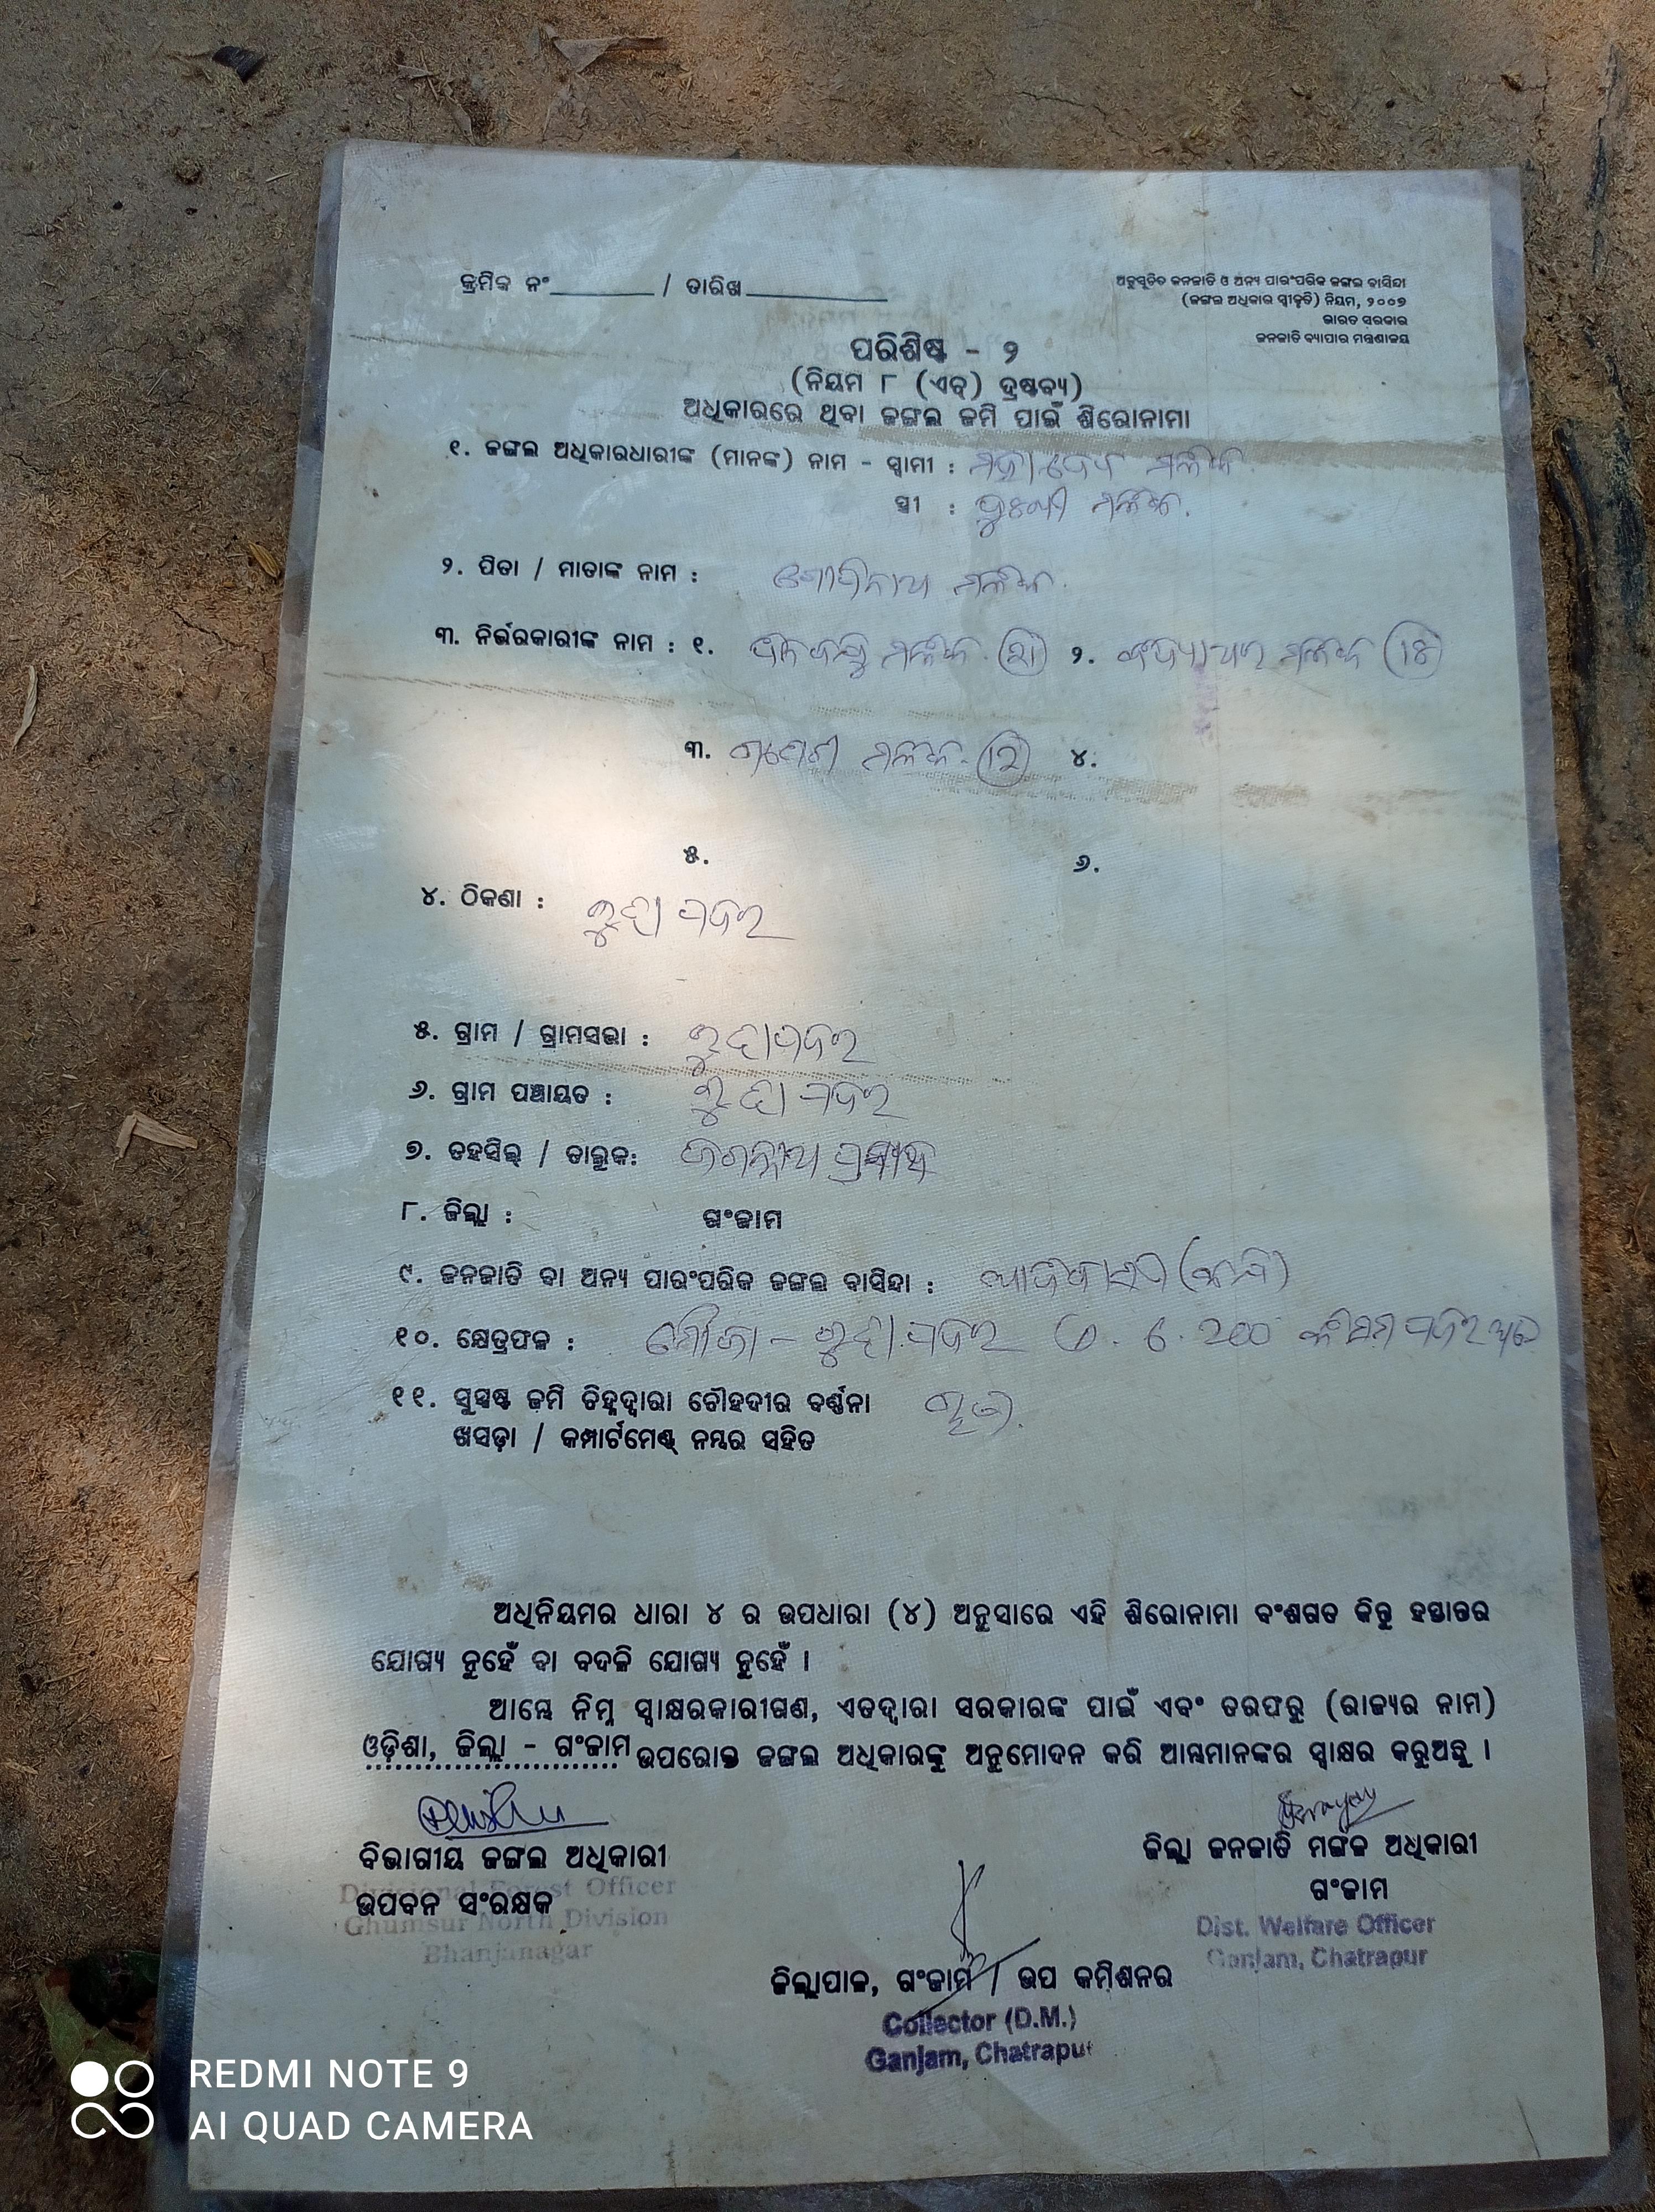 କ୍ରମିକ ନଂ / ତାରିଖ
ଅନୁସୂଚିତ ଜନଜାତି ଓ ଅନ୍ୟ ପାରଂପରିକ ଜଙ୍ଗଲ ବାସିନ୍ଦା
(ଜଙ୍ଗଲ ଅଧିକାର ସ୍ୱୀକୃତି) ନିୟମ, ୨୦୦୭
ଭାରତ ସରକାର
ଜନଜାତି ବ୍ୟାପାର ମନ୍ତ୍ରଣାଳୟ
ପରିଶିଷ୍ଟ - ୨
(ନିୟମ ୮ (ଏଚ୍) ଦ୍ରଷ୍ଟବ୍ୟ)
ଅଧିକାରରେ ଥିବା ଜଙ୍ଗଲ ଜମି ପାଇଁ ଶିରୋନାମା
୧. ଜଙ୍ଗଲ ଅଧିକାରଧାରୀଙ୍କ (ମାନଙ୍କ) ନାମ - ସ୍ୱାମୀ : ମହାଦେବ ମଲିକ
ସ୍ତ୍ରୀ : ମଲିକ.
୨. ପିତା / ମାତାଙ୍କ ନାମ : ଗୋପିନାଥ ମଲିକ.
୩. ନିର୍ଭରକାରୀଙ୍କ ନାମ : ୧. ମଲିକ ୨. ମଲିକ
୩. ମଲିକ. (୧୨) ୪.
୫. ୬.
୪. ଠିକଣା :
୫. ଗ୍ରାମ / ଗ୍ରାମସଭା :
୬. ଗ୍ରାମ ପଞ୍ଚାୟତ :
୭. ତହସିଲ୍ / ତାଲୁକ: ଜଗନ୍ନାଥ ପ୍ରସାଦ
୮. ଜିଲ୍ଲା : ଗଂଜାମ
୯. ଜନଜାତି ବା ଅନ୍ୟ ପାରଂପରିକ ଜଙ୍ଗଲ ବାସିନ୍ଦା : ଆଦିବାସୀ (କନ୍ଧ)
୧୦. କ୍ଷେତ୍ରଫଳ : ମୌଜା -
୧୧. ସୁସ୍ପଷ୍ଟ ଜମି ଚିହ୍ନଦ୍ୱାରା ଚୌହଦୀର ବର୍ଣ୍ଣନା
ଖସଡ଼ା / କମ୍ପାର୍ଟମେଣ୍ଟ୍ ନମ୍ଭର ସହିତ
ଅଧିନିୟମର ଧାରା ୪ ର ଉପଧାରା (୪) ଅନୁସାରେ ଏହି ଶିରୋନାମା ବଂଶଗତ କିନ୍ତୁ ହସ୍ତାନ୍ତର
ଯୋଗ୍ୟ ନୁହେଁ ବା ବଦଳି ଯୋଗ୍ୟ ନୁହେଁ ।
ଆମ୍ଭେ ନିମ୍ନ ସ୍ୱାକ୍ଷରକାରୀଗଣ, ଏତଦ୍ୱାରା ସରକାରଙ୍କ ପାଇଁ ଏବଂ ତରଫରୁ (ରାଜ୍ୟର ନାମ)
ଓଡ଼ିଶା, ଜିଲ୍ଲା - ଗଂଜାମ ଉପରୋକ୍ତ ଜଙ୍ଗଲ ଅଧିକାରଙ୍କୁ ଅନୁମୋଦନ କରି ଆମ୍ଭମାନଙ୍କର ସ୍ୱାକ୍ଷର କରୁଅଛୁ ।
ବିଭାଗୀୟ ଜଙ୍ଗଲ ଅଧିକାରୀ
Divisional Forest Officer
ଉପବନ ସଂରକ୍ଷକ
Ghumsur North Division
Bhanjanagar
ଜିଲ୍ଲା ଜନଜାତି ମଙ୍ଗଳ ଅଧିକାରୀ
ଗଂଜାମ
Dist. Welfare Officer
Ganjam, Chatrapur
ଜିଲ୍ଲାପାଳ, ଗଂଜାମ / ଉପ କମିଶନର
Collector (D.M.)
Ganjam, Chatrapur
REDMI NOTE 9
AI QUAD CAMERA